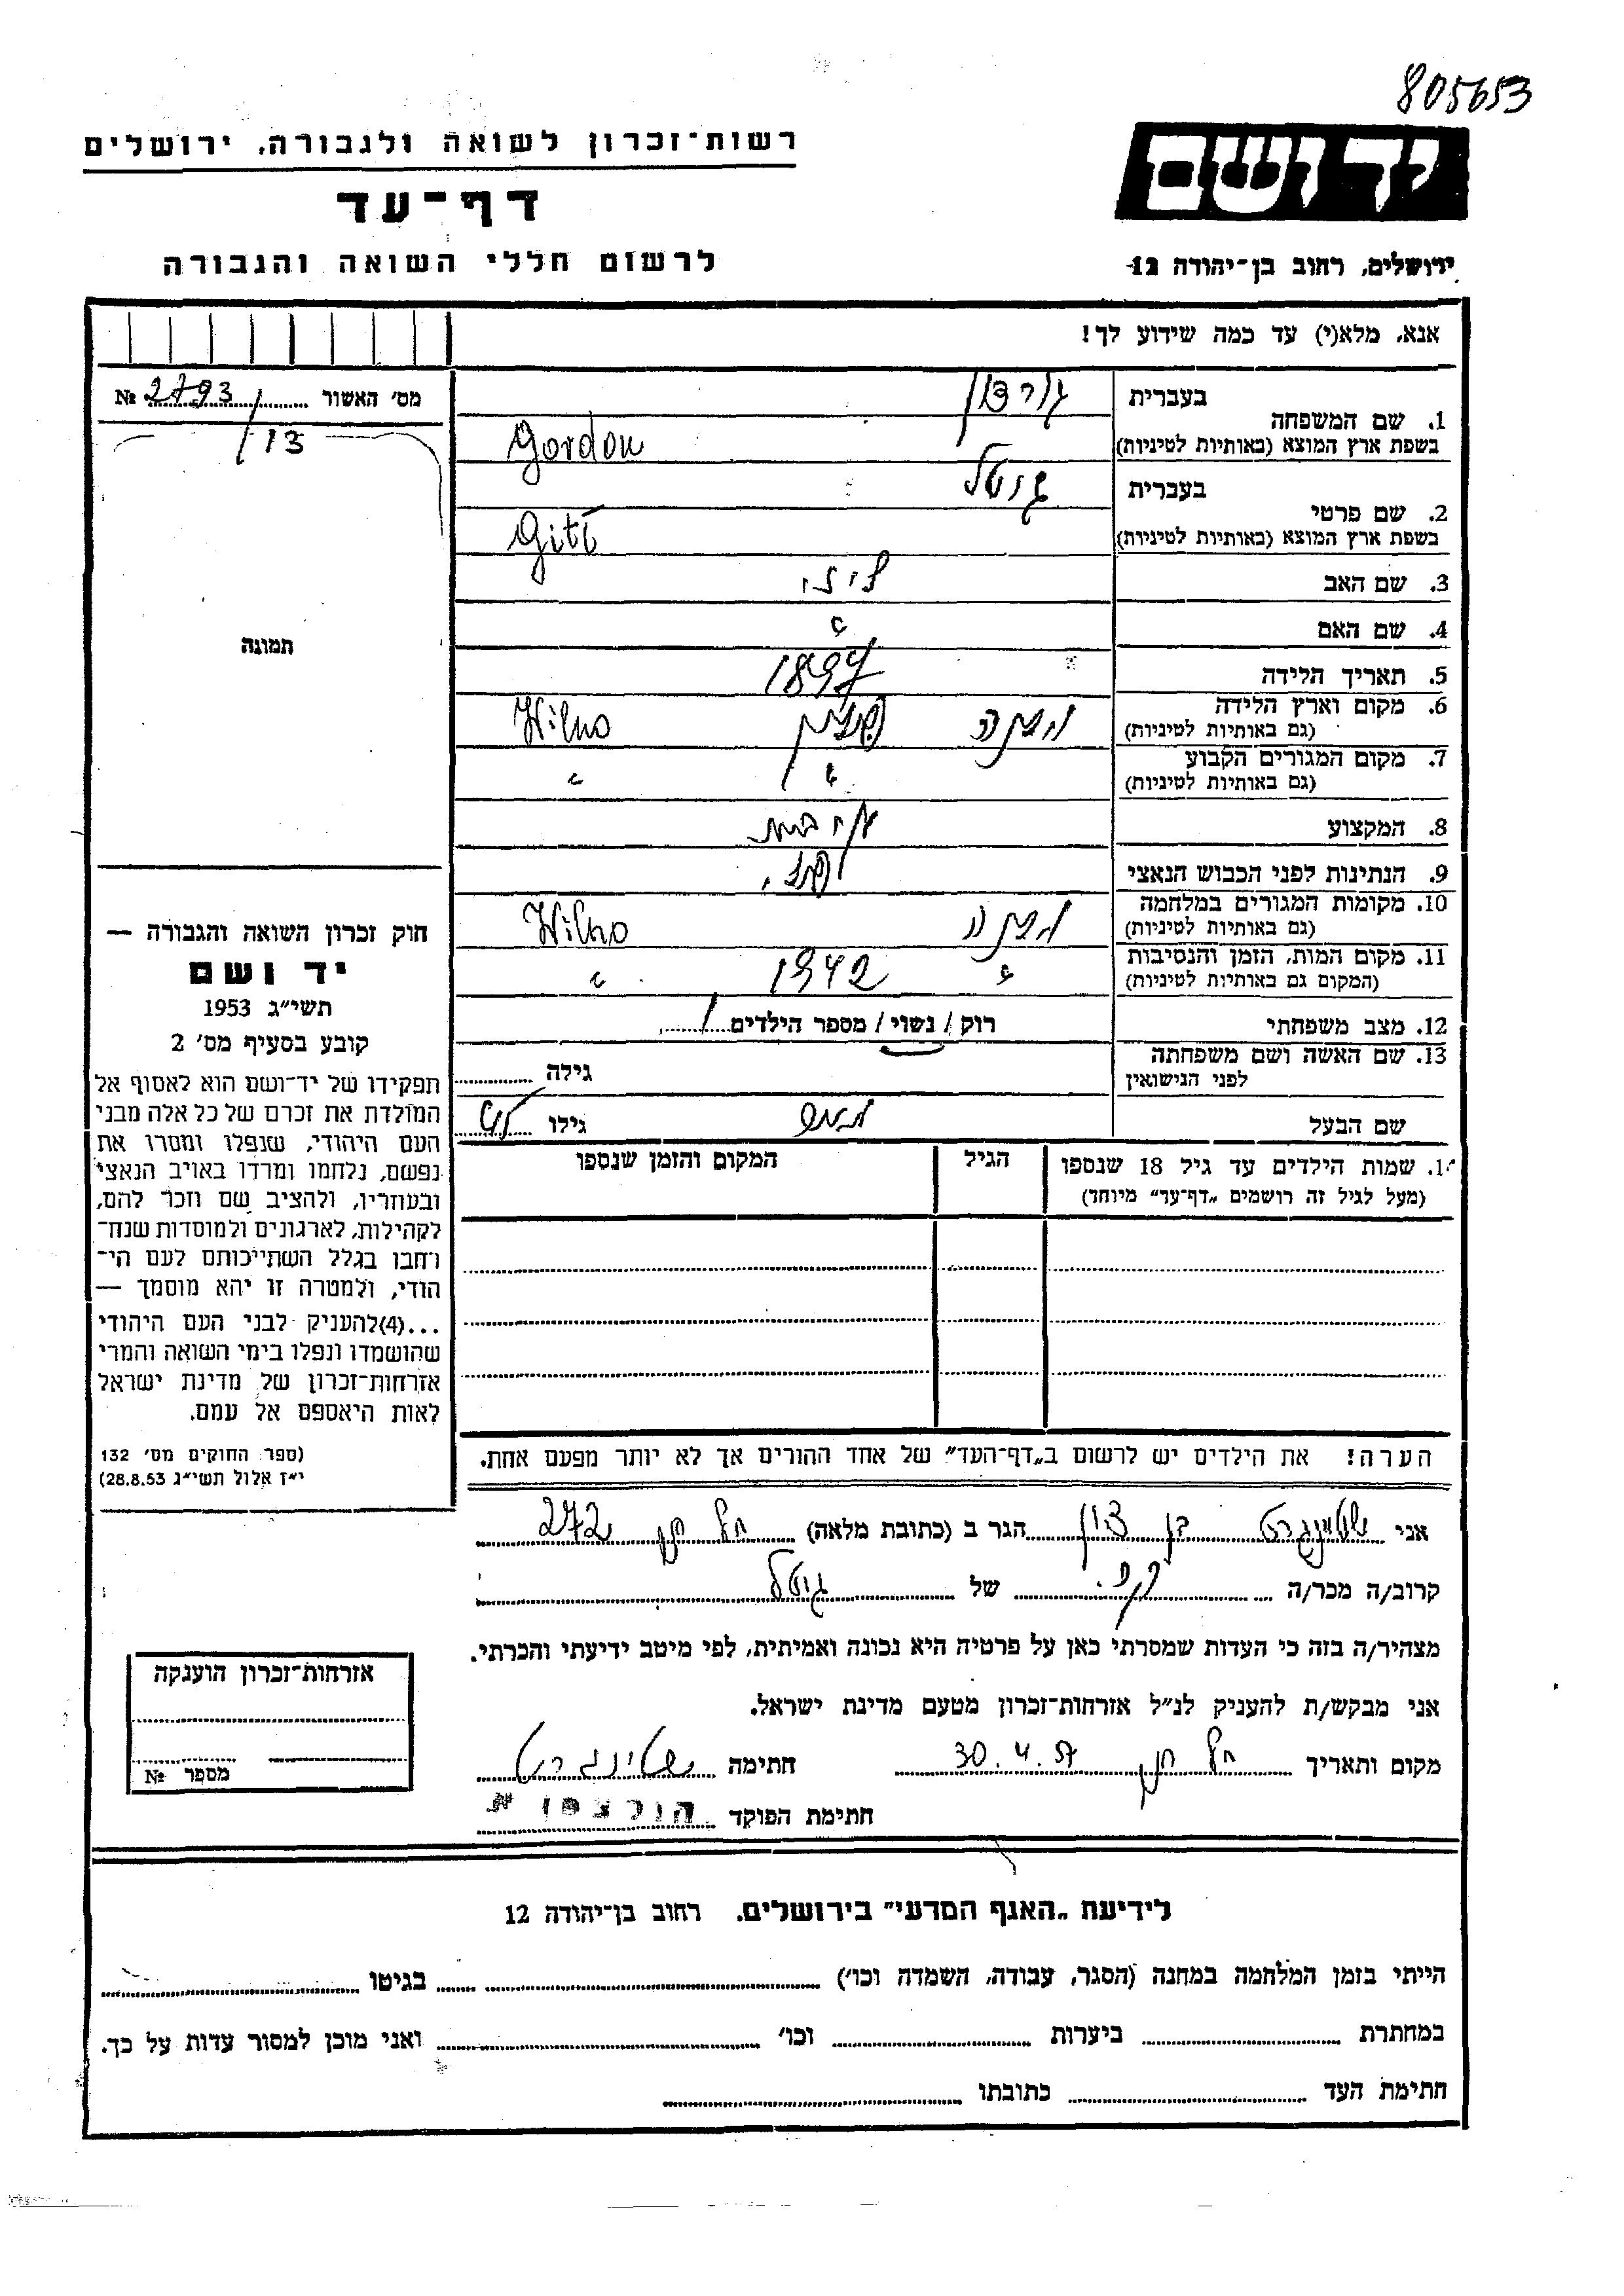 805653
רשות־זכרון לשואה ולגבורה, ירושלים
יד ושם
דף־עד
לרשום חללי השואה והגבורה
ירושלים, רחוב בן־יהודה 12
אנא, מלא(י) עד כמה שידוע לך!
מס׳ האשור 2793 №
/13
1. שם המשפחה בעברית גורדון
בשפת ארץ המוצא (באותיות לטיניות) Gordon
2. שם פרטי בעברית גוטל
בשפת ארץ המוצא (באותיות לטיניות)
3. שם האב
4. שם האם
5. תאריך הלידה 1897
6. מקום וארץ הלידה (גם באותיות לטיניות) וילנה פולין Wilno
7. מקום המגורים הקבוע (גם באותיות לטיניות) " "
8. המקצוע
9. הנתינות לפני הכבוש הנאצי פולני
10. מקומות המגורים במלחמה (גם באותיות לטיניות) וילנה Wilno
11. מקום המות, הזמן והנסיבות (המקום גם באותיות לטיניות) " 1942 "
12. מצב משפחתי רוק / נשוי / מספר הילדים 1
13. שם האשה ושם משפחתה לפני הנישואין גילה
שם הבעל גילו 45
תמונה
חוק זכרון השואה והגבורה —
יד ושם
תשי״ג 1953
קובע בסעיף מס׳ 2
תפקידו של יד־ושם הוא לאסוף אל
המולדת את זכרם של כל אלה מבני
העם היהודי, שנפלו ומסרו את
נפשם, נלחמו ומרדו באויב הנאצי
ובעוזריו, ולהציב שם וזכר להם,
לקהילות, לארגונים ולמוסדות שנח־
רחבו בגלל השתייכותם לעם הי־
הודי, ולמטרה זו יהא מוסמך —
...(4)להעניק לבני העם היהודי
שהושמדו ונפלו בימי השואה והמרי
אזרחות־זכרון של מדינת ישראל
לאות היאספם אל עמם.
(ספר החוקים מס׳ 132
י״ז אלול תשי״ג 28.8.53)
1. שמות הילדים עד גיל 18 שנספו הגיל המקום והזמן שנספו
(מעל לגיל זה רושמים „דף־עד״ מיוחד)
הערה! את הילדים יש לרשום ב„דף־העד״ של אחד ההורים אך לא יותר מפעם אחת.
אני שטיינגרט בן ציון הגר ב (כתובת מלאה) תל חנן 272
קרוב/ה מכר/ה של גוטל
מצהיר/ה בזה כי העדות שמסרתי כאן על פרטיה היא נכונה ואמיתית, לפי מיטב ידיעתי והכרתי.
אני מבקש/ת להעניק לנ״ל אזרחות־זכרון מטעם מדינת ישראל.
מקום ותאריך תל חנן 30.4.57 חתימה שטינגרט
חתימת הפוקד
אזרחות־זכרון הוענקה
מספר №
לידיעת „האגף המדעי״ בירושלים, רחוב בן־יהודה 12
הייתי בזמן המלחמה במחנה (הסגר, עבודה, השמדה וכו׳) בגיטו
במחתרת ביערות וכו׳ ואני מוכן למסור עדות על כך.
חתימת העד כתובתו